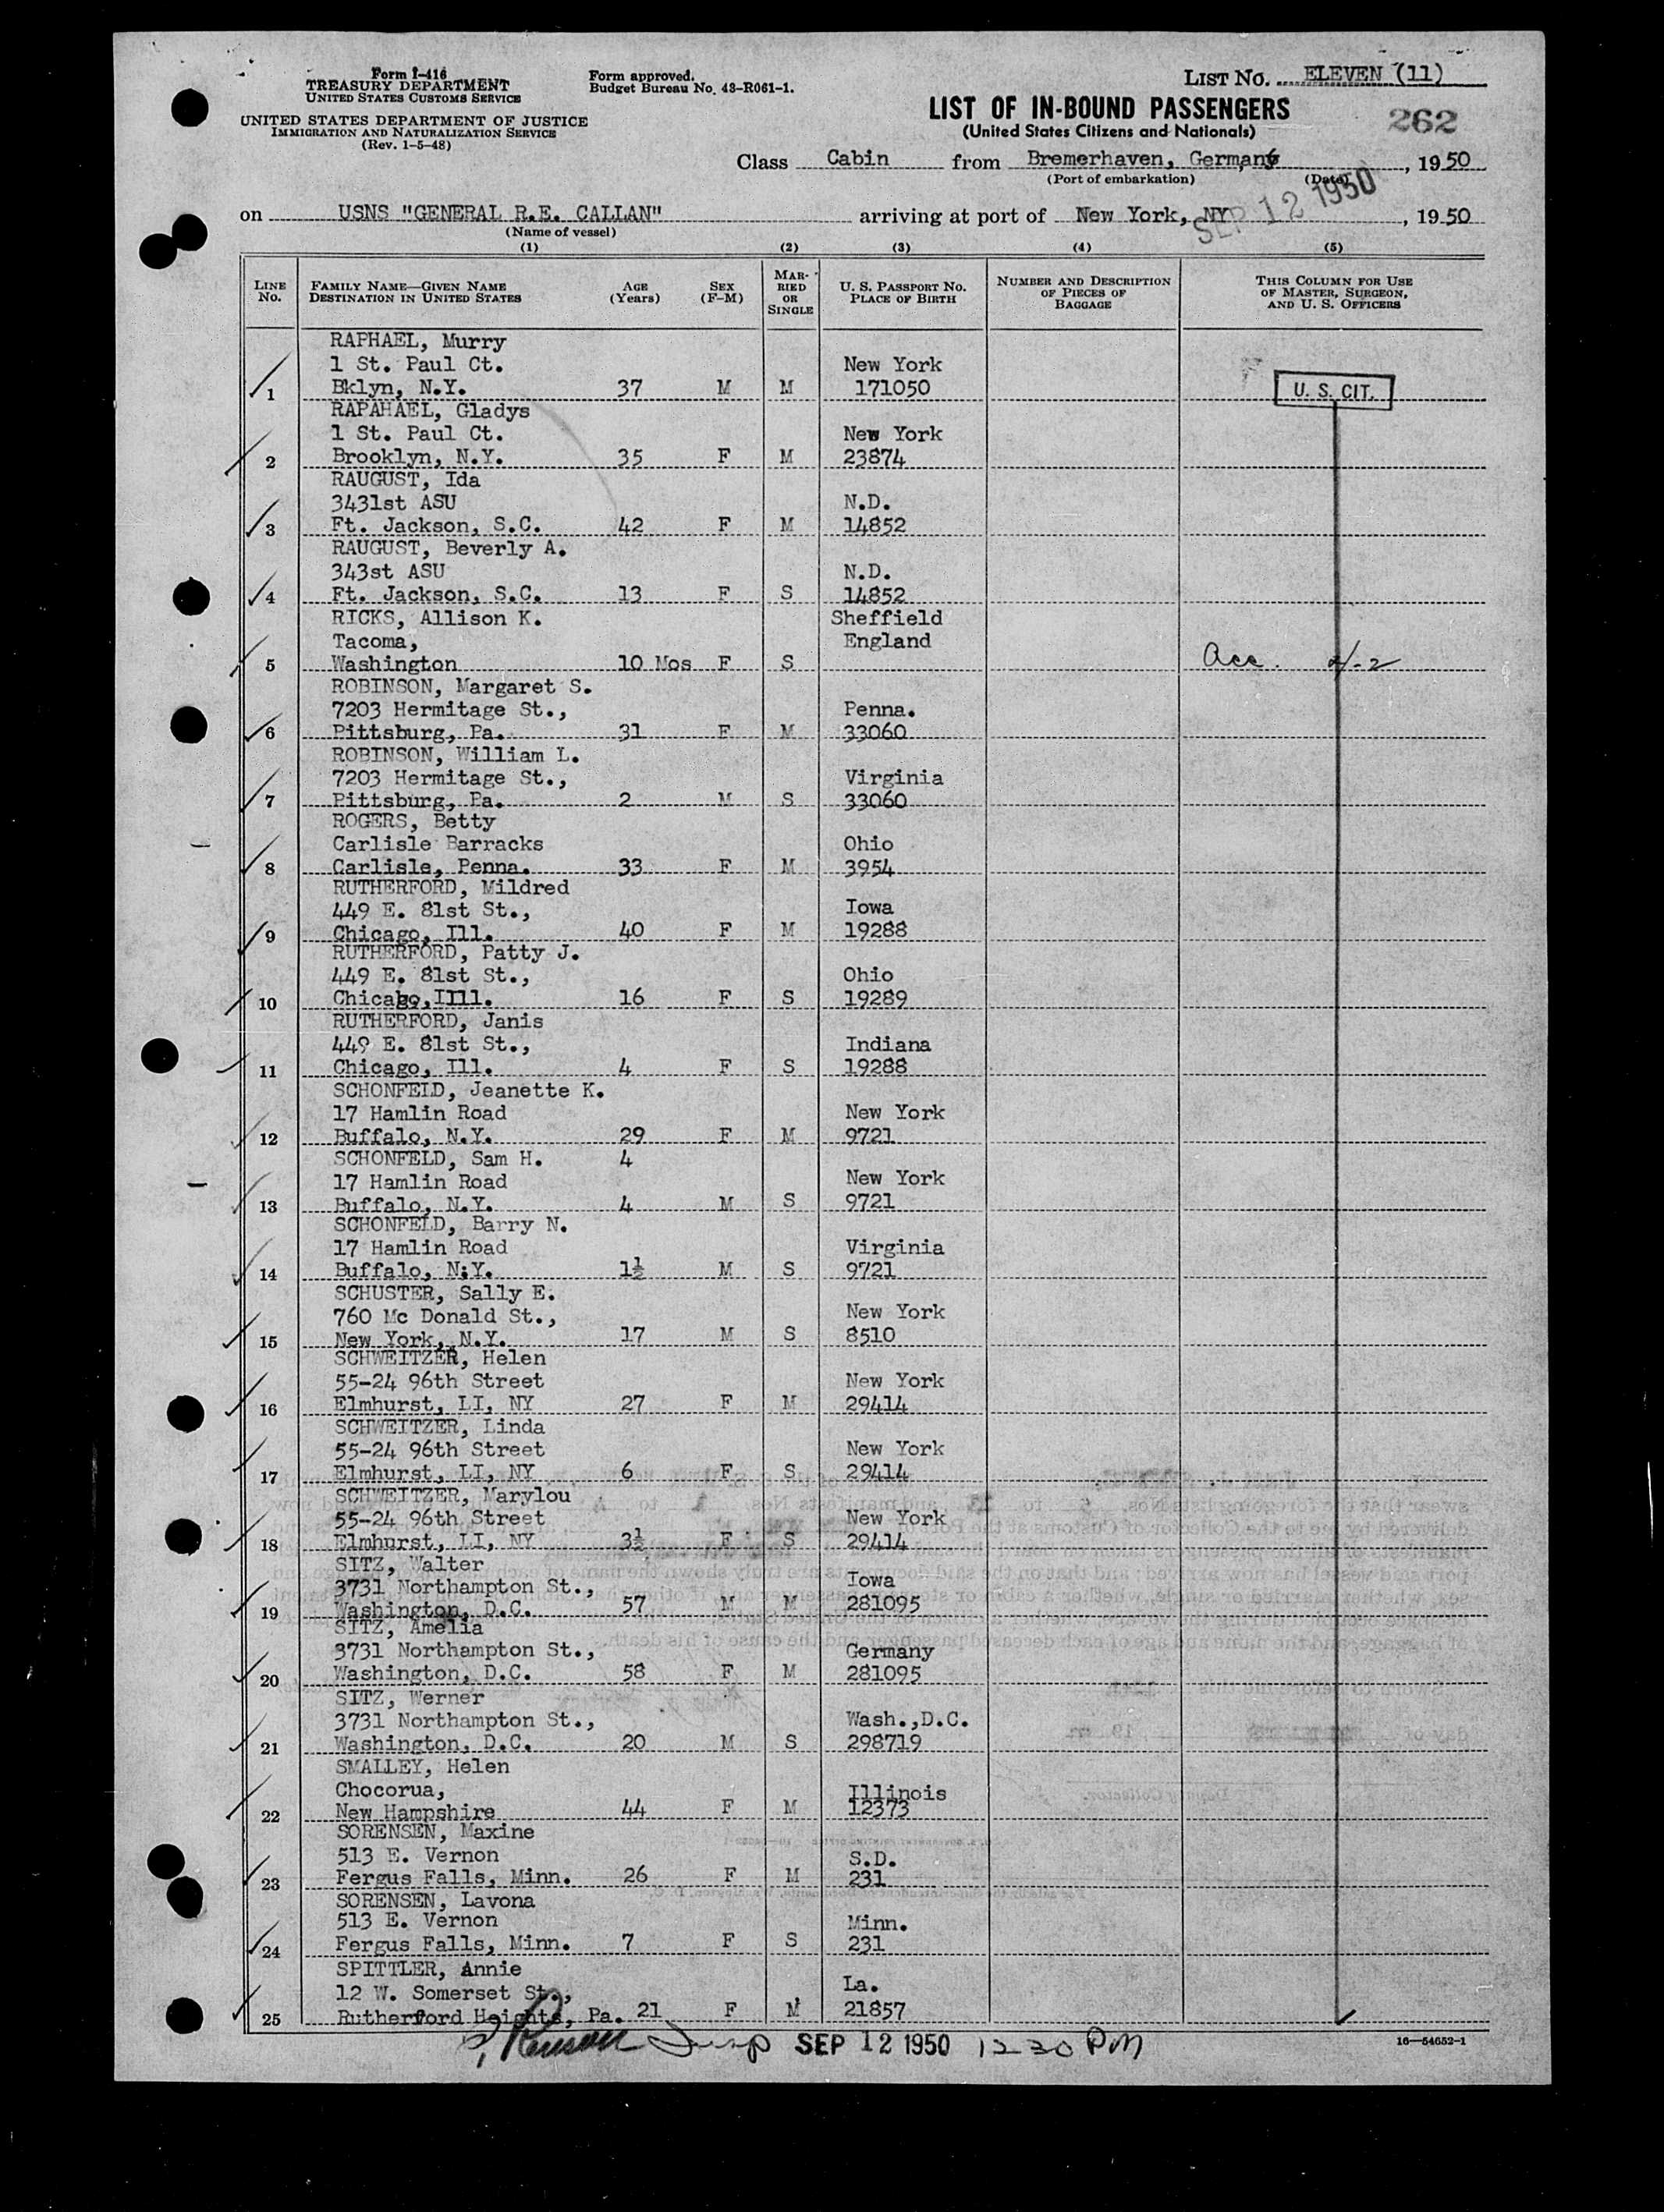 Form I-416
TREASURY DEPARTMENT
UNITED STATES CUSTOMS SERVICE
UNITED STATES DEPARTMENT OF JUSTICE
IMMIGRATION AND NATURALIZATION SERVICE
(Rev. 1-5-48)
Form approved.
Budget Bureau No. 43-R061-1.
LIST NO. ELEVEN (11)
LIST OF IN-BOUND PASSENGERS
262
(United States Citizens and Nationals)
Class Cabin from Bremerhaven, Germany, 1950
(Port of embarkation) (Date)
on USNS "GENERAL R.E. CALLAN" arriving at port of New York, NY SEP 12 1950, 1950
(Name of vessel)
(1) (2) (3) (4) (5)
LINE NO. FAMILY NAME—GIVEN NAME DESTINATION IN UNITED STATES AGE (Years) SEX (F-M) MARRIED OR SINGLE U. S. PASSPORT NO. PLACE OF BIRTH NUMBER AND DESCRIPTION OF PIECES OF BAGGAGE THIS COLUMN FOR USE OF MASTER, SURGEON, AND U. S. OFFICERS
RAPHAEL, Murry
1 St. Paul Ct. New York
1 Bklyn, N.Y. 37 M M 171050 U. S. CIT.
RAPAHAEL, Gladys
1 St. Paul Ct. New York
2 Brooklyn, N.Y. 35 F M 23874
RAUGUST, Ida
3431st ASU N.D.
3 Ft. Jackson, S.C. 42 F M 14852
RAUGUST, Beverly A.
343st ASU N.D.
4 Ft. Jackson, S.C. 13 F S 14852
RICKS, Allison K. Sheffield
Tacoma, England
5 Washington 10 Mos F S Acc. 4-2
ROBINSON, Margaret S.
7203 Hermitage St., Penna.
6 Pittsburg, Pa. 31 F M 33060
ROBINSON, William L.
7203 Hermitage St., Virginia
7 Pittsburg, Pa. 2 M S 33060
ROGERS, Betty
Carlisle Barracks Ohio
8 Carlisle, Penna. 33 F M 3954
RUTHERFORD, Mildred
449 E. 81st St., Iowa
9 Chicago, Ill. 40 F M 19288
RUTHERFORD, Patty J.
449 E. 81st St., Ohio
10 Chicago, Illl. 16 F S 19289
RUTHERFORD, Janis
449 E. 81st St., Indiana
11 Chicago, Ill. 4 F S 19288
SCHONFELD, Jeanette K.
17 Hamlin Road New York
12 Buffalo, N.Y. 29 F M 9721
SCHONFELD, Sam H. 4
17 Hamlin Road New York
13 Buffalo, N.Y. 4 M S 9721
SCHONFELD, Barry N.
17 Hamlin Road Virginia
14 Buffalo, N:Y. 1½ M S 9721
SCHUSTER, Sally E.
760 Mc Donald St., New York
15 New York, N.Y. 17 M S 8510
SCHWEITZER, Helen
55-24 96th Street New York
16 Elmhurst, LI, NY 27 F M 29414
SCHWEITZER, Linda
55-24 96th Street New York
17 Elmhurst, LI, NY 6 F S 29414
SCHWEITZER, Marylou
55-24 96th Street New York
18 Elmhurst, LI, NY 3½ F S 29414
SITZ, Walter
3731 Northampton St., Iowa
19 Washington, D.C. 57 M M 281095
SITZ, Amelia
3731 Northampton St., Germany
20 Washington, D.C. 58 F M 281095
SITZ, Werner
3731 Northampton St., Wash.,D.C.
21 Washington, D.C. 20 M S 298719
SMALLEY, Helen
Chocorua, Illinois
22 New Hampshire 44 F M 12373
SORENSEN, Maxine
513 E. Vernon S.D.
23 Fergus Falls, Minn. 26 F M 231
SORENSEN, Lavona
513 E. Vernon Minn.
24 Fergus Falls, Minn. 7 F S 231
SPITTLER, Annie
12 W. Somerset St., La.
25 Rutherford Heights, Pa. 21 F M 21857
SEP 12 1950 12 30 PM
16—54652-1